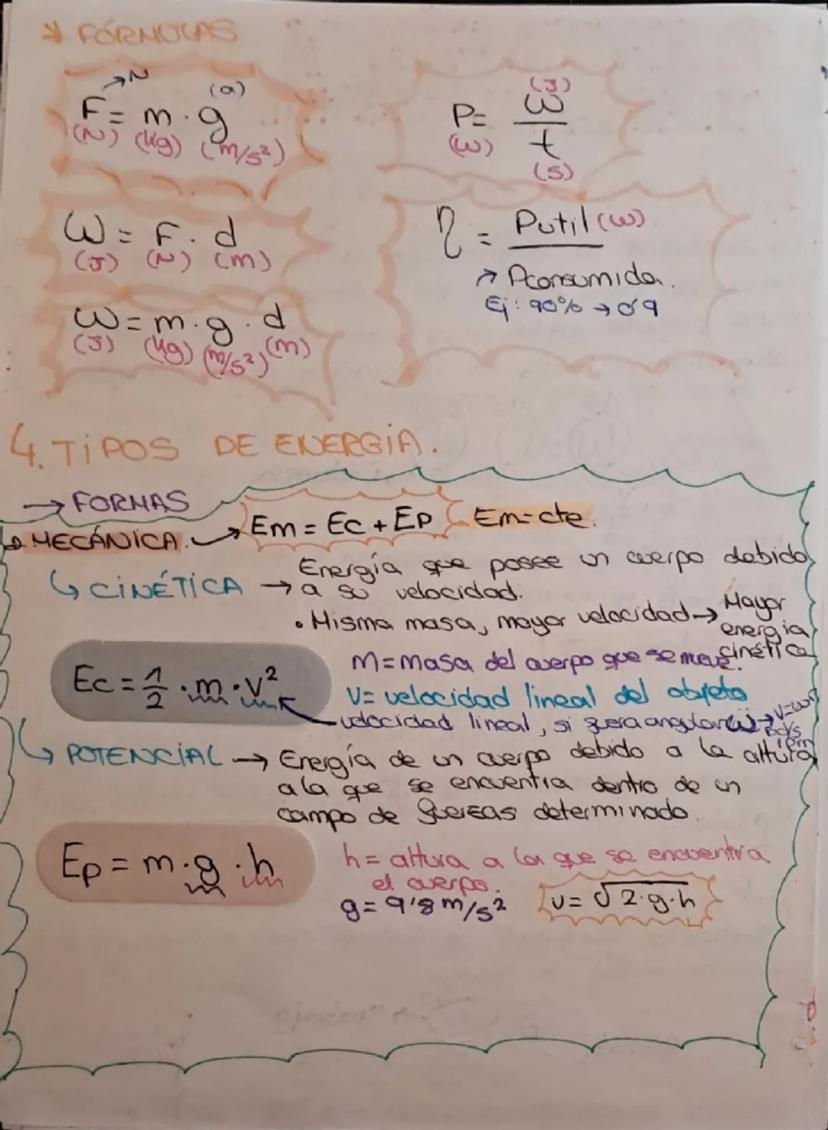 * FÓRMULAS
→N
(a)
F = m · g
(N) (Kg) (m/s²)
(J)
P = ω / t
(W)
(S)
W = F · d
(J) (N) (m)
W = m · g · d
(J) (Kg) (m/s²) (m)
η = Putil (W)
↗ Pconsumida.
Ej: 90% → 0'9
4. TIPOS DE ENERGÍA.
→ FORMAS
↳ MECÁNICA. → Em = Ec + Ep Em = cte.
↳ CINÉTICA → Energía que posee un cuerpo debido
a su velocidad.
• Misma masa, mayor velocidad → Mayor
energia
cinética
Ec = 1/2 · m · v²
m = masa del cuerpo que se mueve.
v = velocidad lineal del objeto
velocidad lineal, si fuera angular ω → v=ωr
rad/s
rpm
↳ POTENCIAL → Energía de un cuerpo debido a la altura
a la que se encuentra dentro de un
campo de fuerzas determinado.
Ep = m · g · h
h = altura a la que se encuentra
el cuerpo.
g = 9'8 m/s² v = √2·g·h